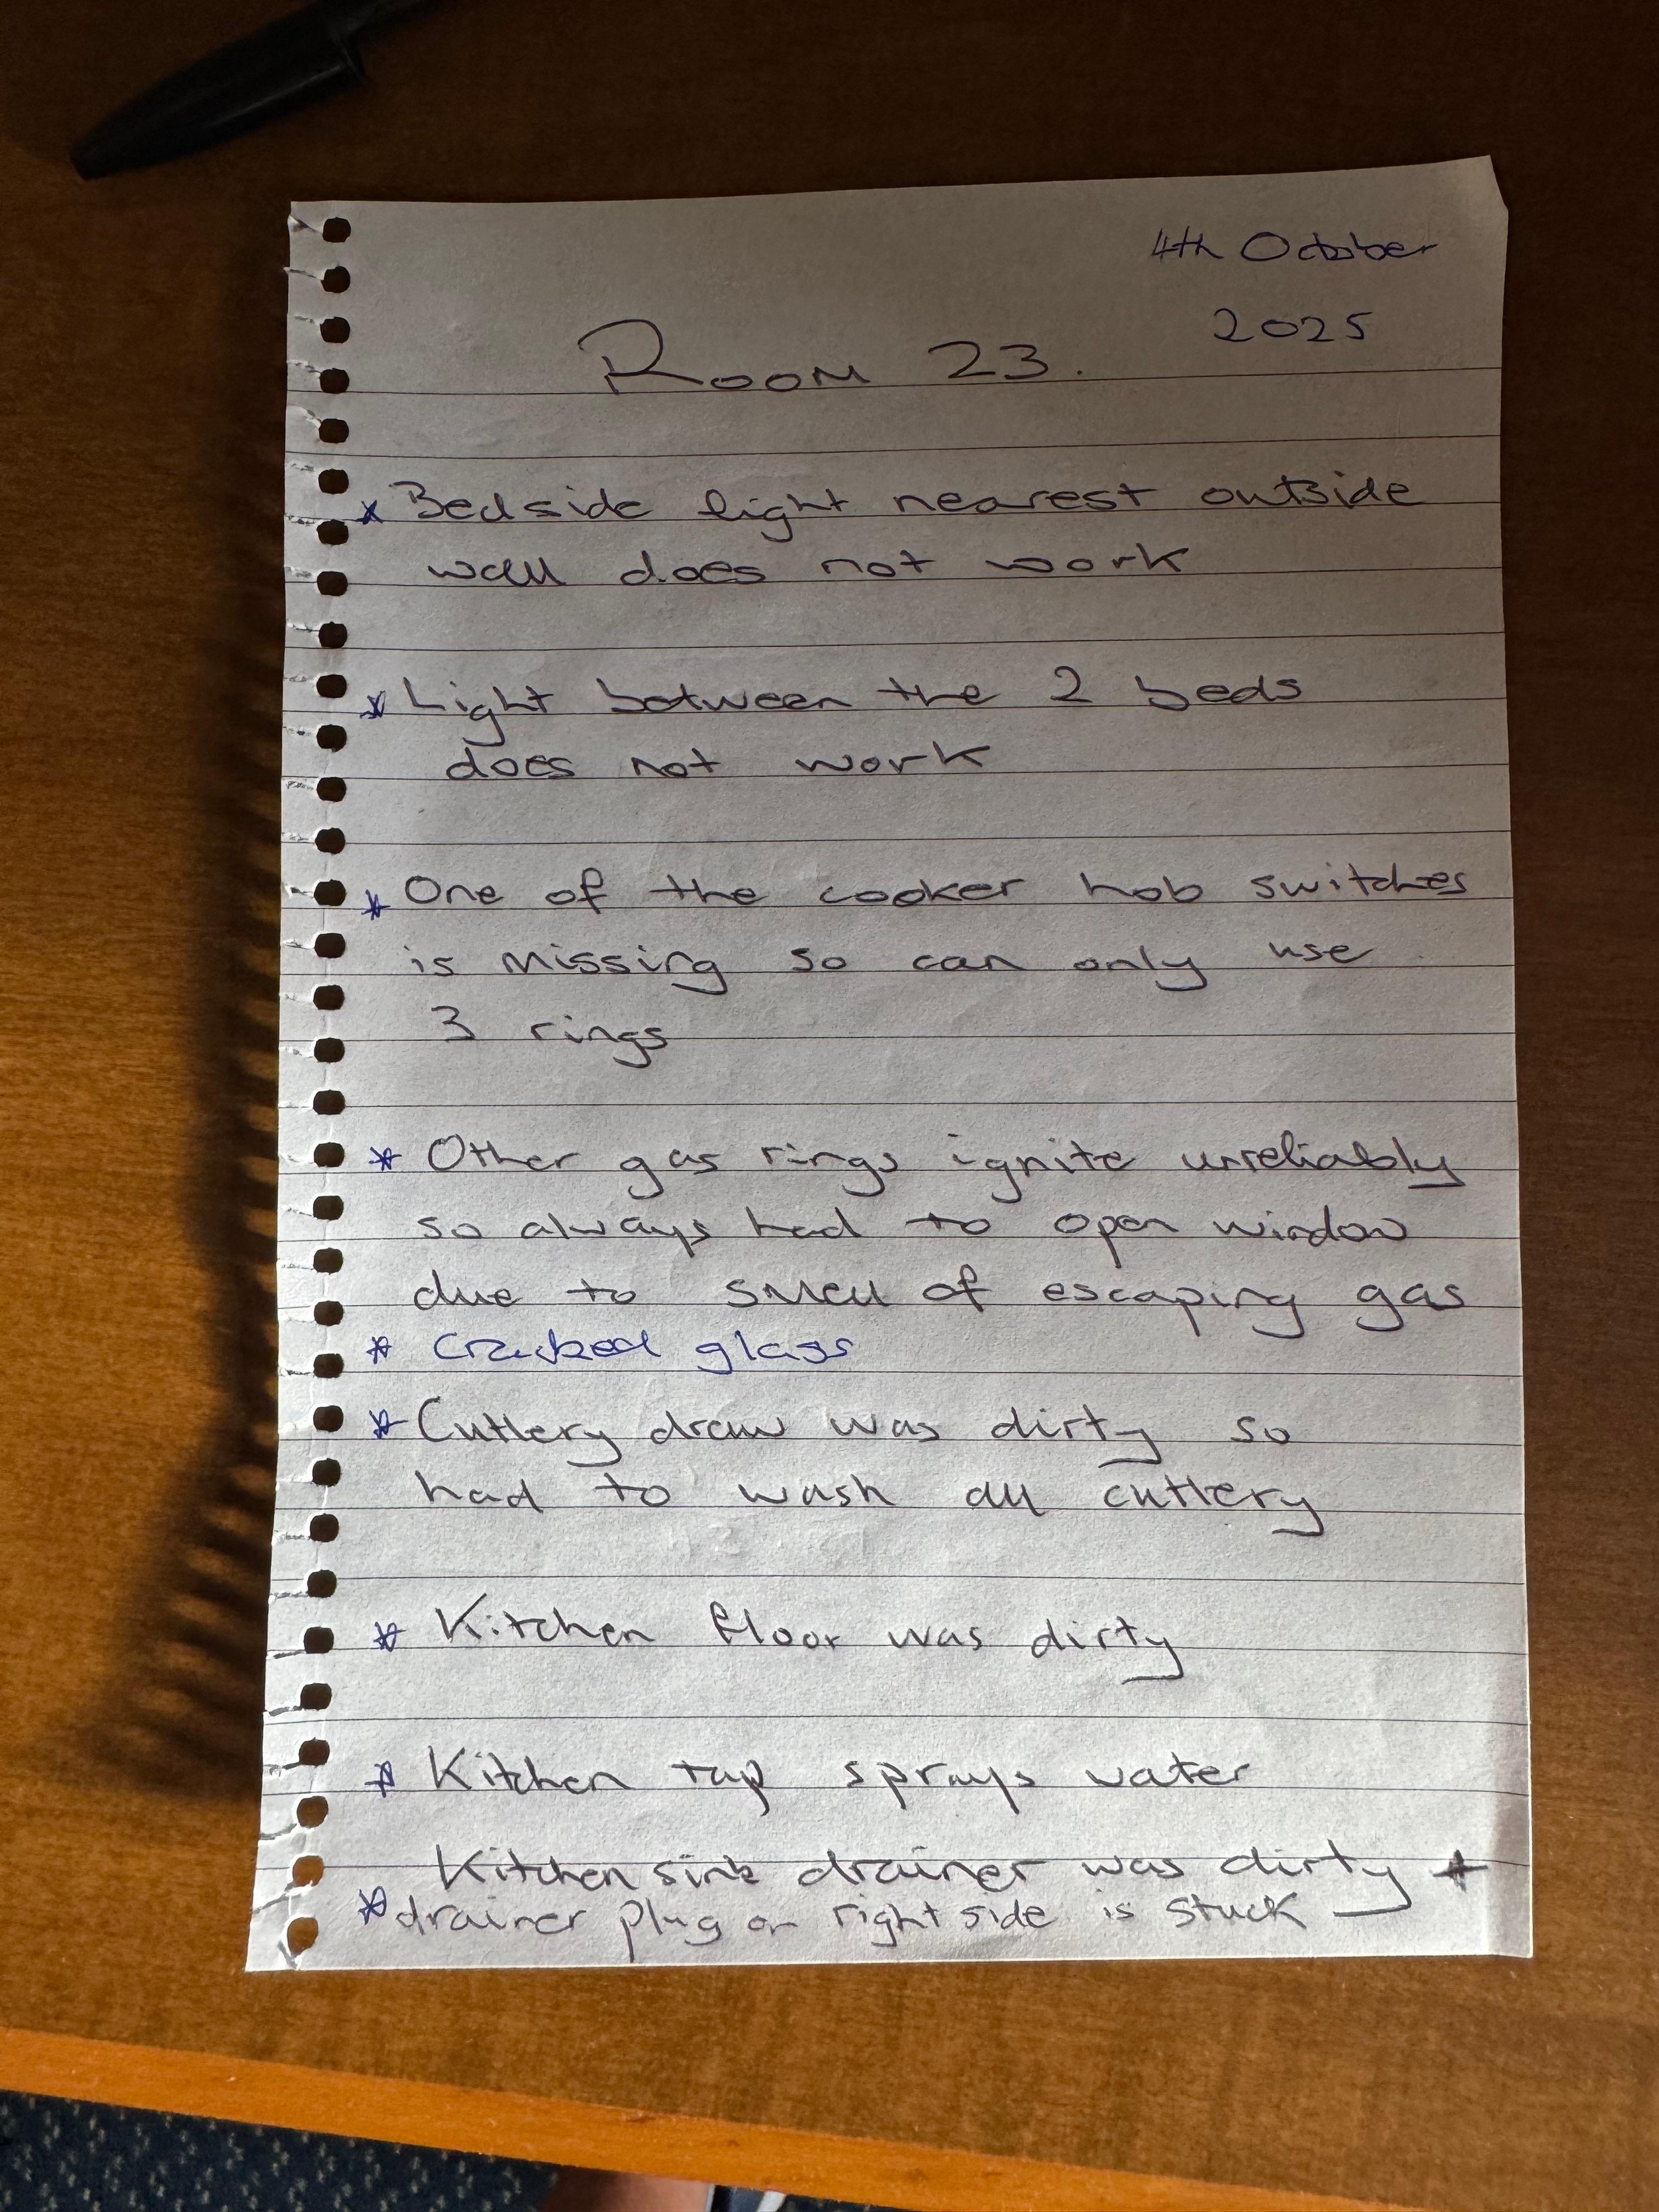 4th October
2025
Room 23.
* Bedside light nearest outside
wall does not work
* Light between the 2 beds
does not work
* One of the cooker hob switches
is missing so can only use
3 rings
* Other gas rings ignite unreliably
so always had to open window
due to smell of escaping gas
* Cracked glass
* Cutlery draw was dirty so
had to wash all cutlery
* Kitchen floor was dirty
* Kitchen tap sprays water
Kitchen sink drainer was dirty +
* drainer plug on right side is stuck